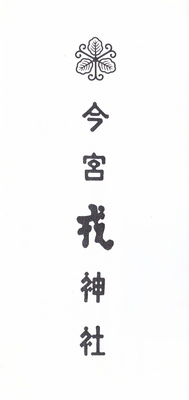 今宮戎神社